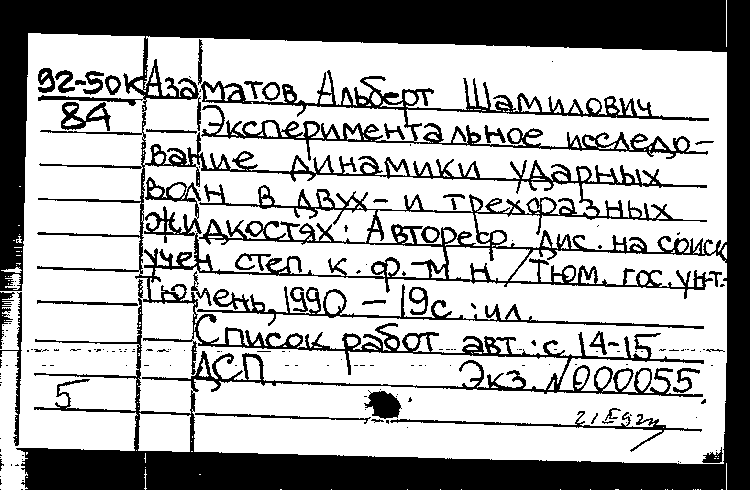 92-50к Азаматов, Альберт Шамилович
84 Экспериментальное исследо-
вание динамики ударных
волн в двух- и трехфазных
жидкостях: Автореф. дис. на соиск.
учен степ. к. ф.-м. н. / Тюм. гос. ун-т.-
Тюмень, 1990 - 19с.: ил.
Список работ авт.: с. 14-15.
ДСП. Экз. N000055.
5